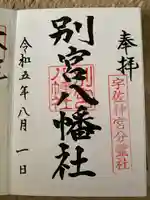 奉拝
宇佐神宮分霊社
別宮八幡社
令和五年八月一日